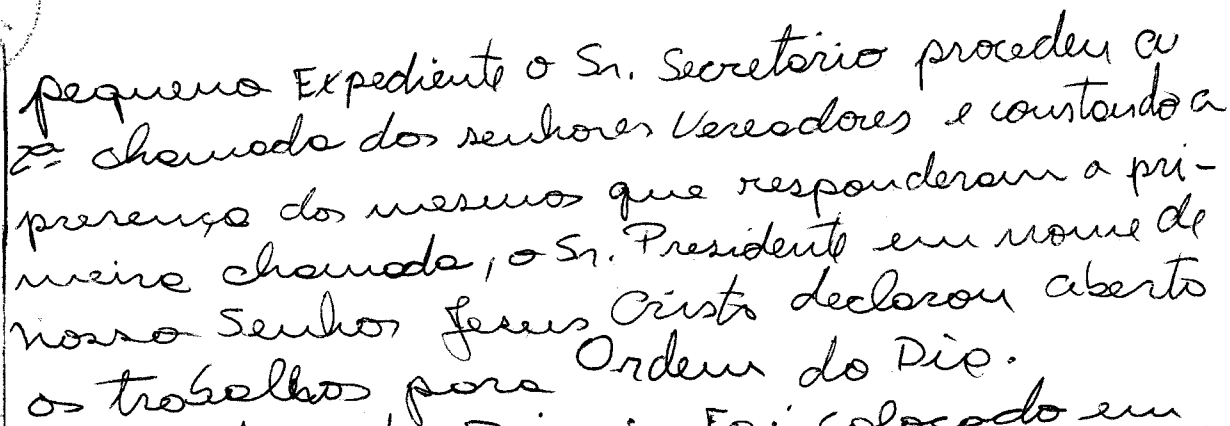 pequeno Expediente o Sr. Secretario procedeu a
2ª chamada dos senhores Vereadores e constando a
presença dos mesmos que responderam a pri-
meira chamada, o Sr. Presidente em nome de
nosso Senhor Jesus Cristo declarou aberto
os trabalhos para Ordem do Dia.
Foi colocado em